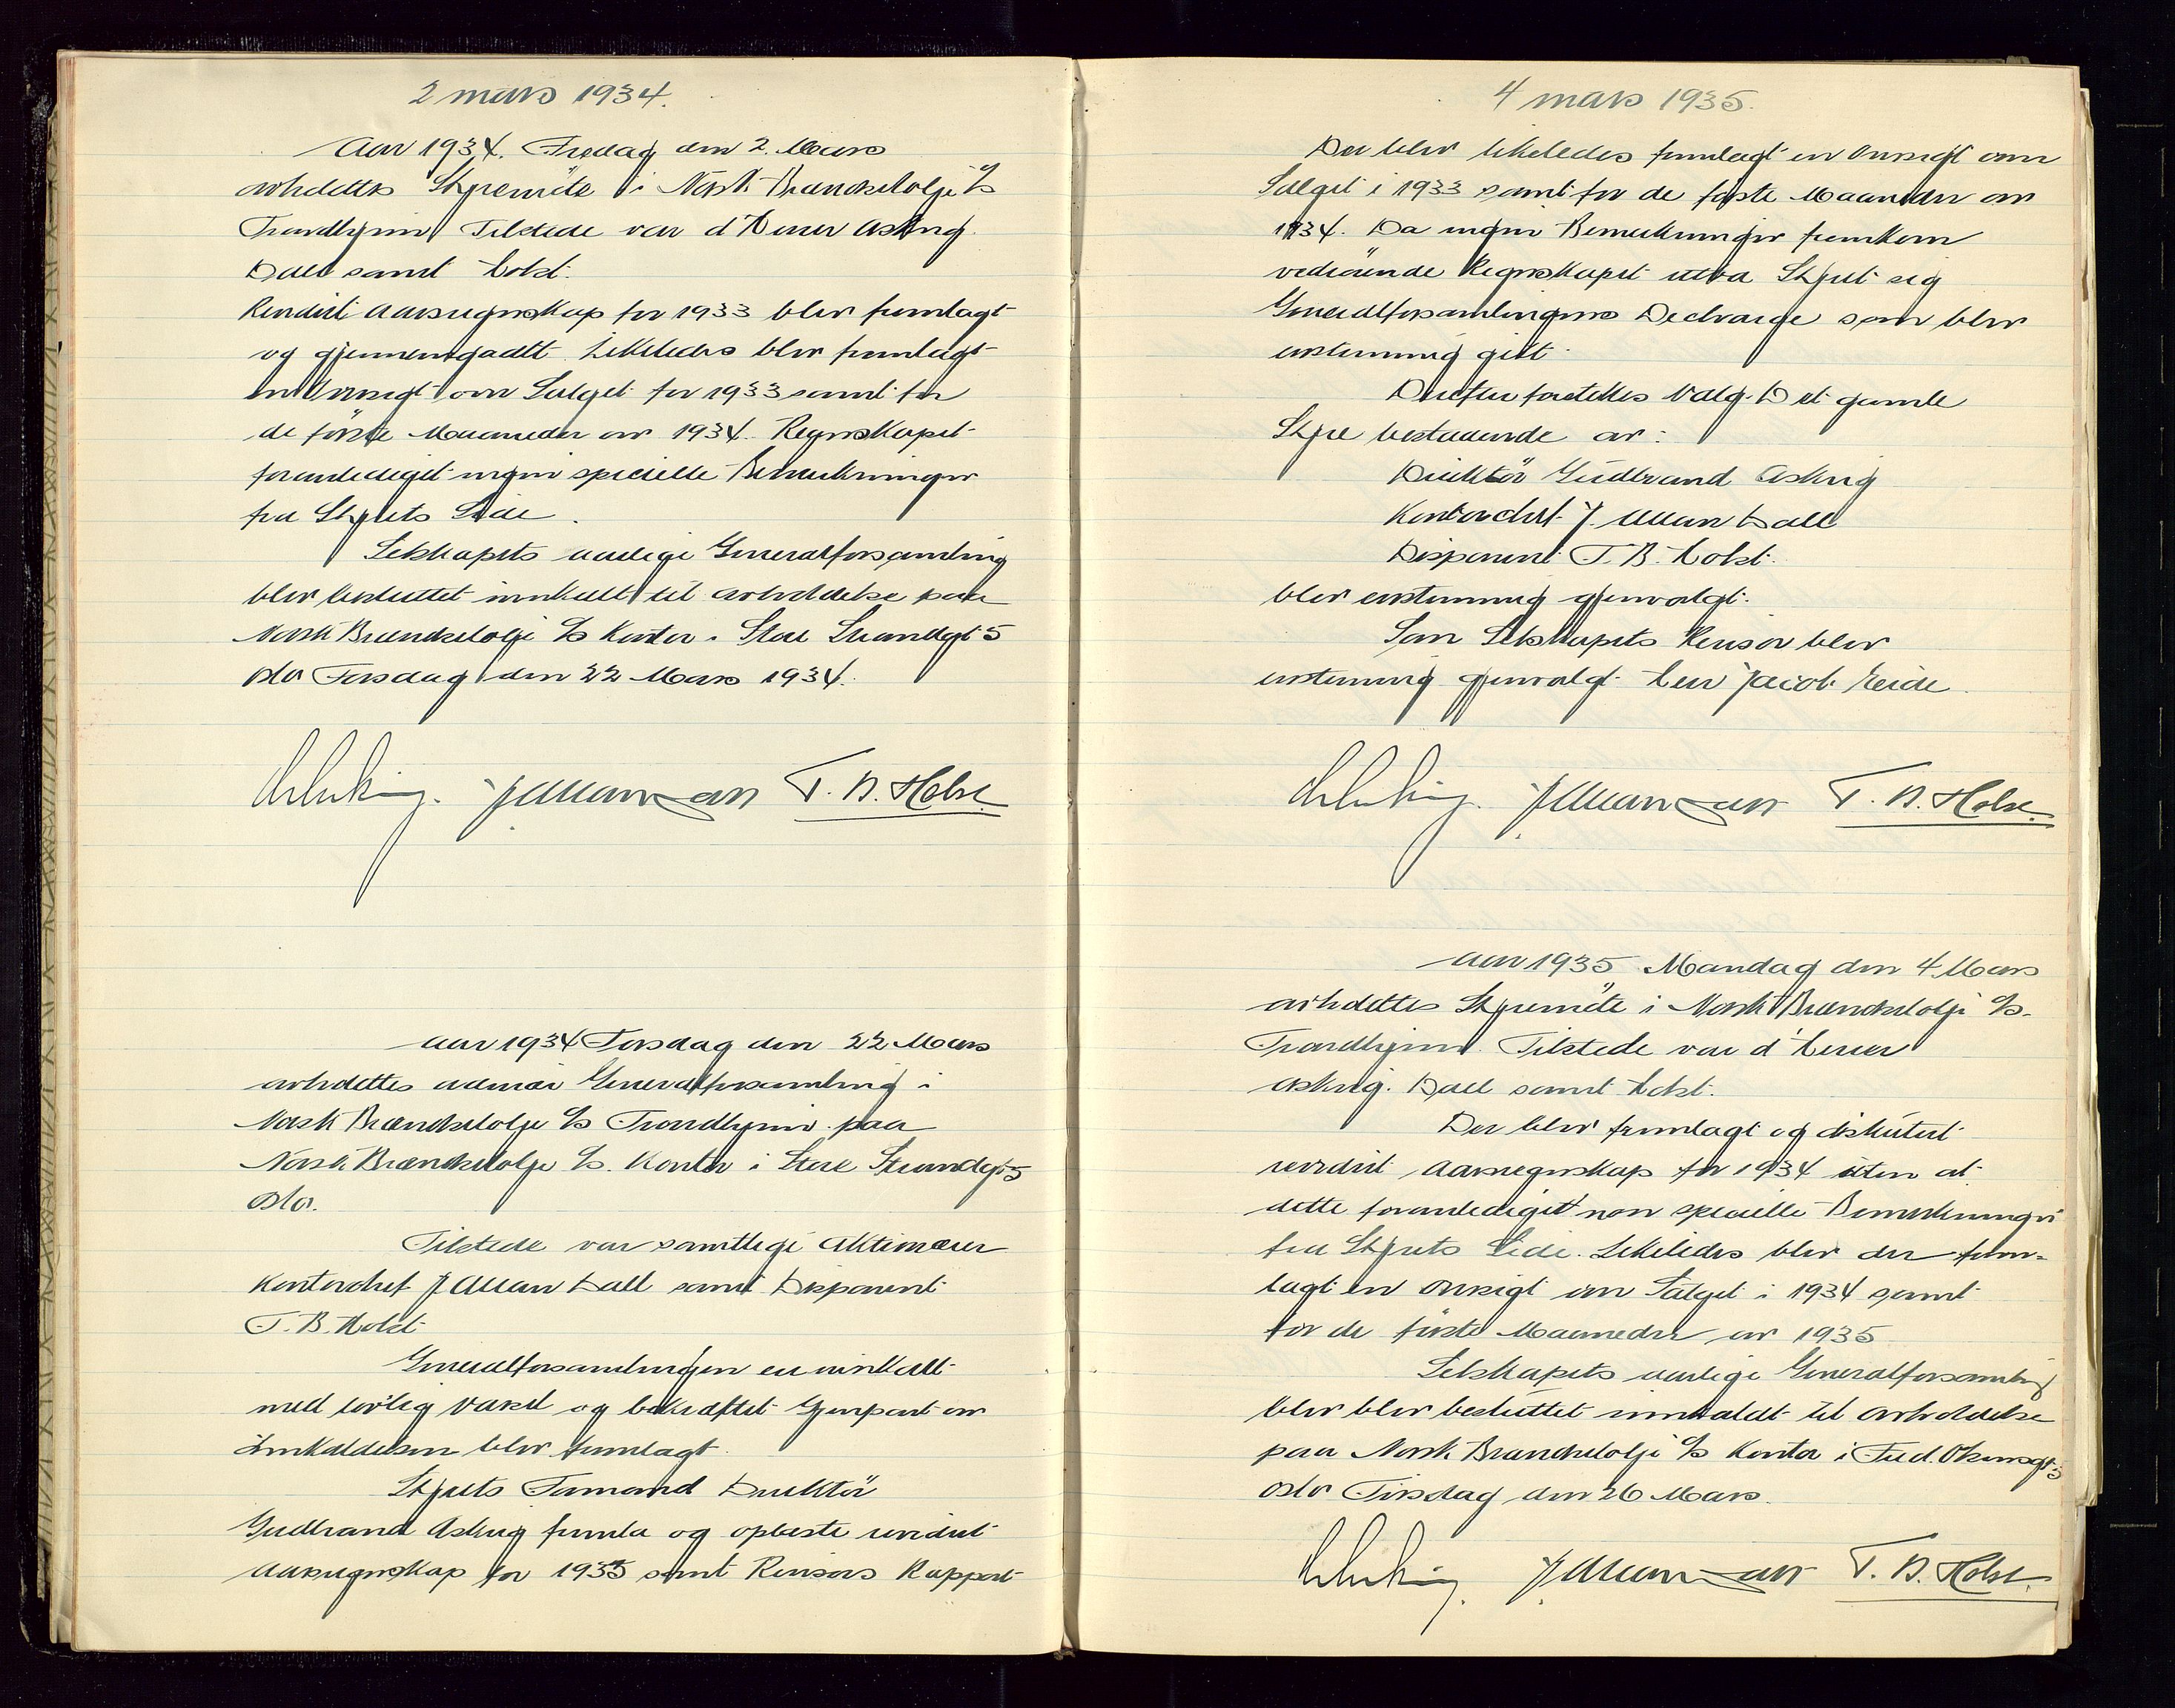 2 mars 1934.
Aar 1934. Fredag den 2. Mars
avholdtes Styremöte i Norsk Brændselolje A/S
Trondhjem. Tilstede var d'Herrer Askvig.
Dall samt Holst.
Revidert Aarsregnskap for 1933 blev fremlagt
og gjennemgaatt. Likeledes blev fremlagt
en Oversigt over Salget for 1933 samt for
de förste Maaneder av 1934. Regnskapet
foranlediget ingen specielle Bemerkninger
fra Styrets Side.
Selskapets aarlige Generalforsamling
blev besluttet innkalt til avholdelse paa
Norsk Brændselolje A/S Kontor i Store Strandgt 5
Oslo Torsdag den 22 Mars 1934.
T. B. Holst
Aar 1934 Torsdag den 22 Mars
avholdtes ordinær Generalforsamling i
Norsk Brændselolje A/S Trondhjem paa
Norsk Brændselolje A/S. Kontor i Store Strandgt 5
Oslo.
Tilstede var samtlige Aktionærer
Kontorchef J Allan Dall samt Disponent
T. B. Holst
Generalforsamlingen er innkalt
med lovlig Varsel og bekræftet Gjenpart av
Innkaldelsen blev fremlagt.
Styrets Formand Direktör
Gudbrand Askvig fremla og oplæste revidert
Aarsregnskap for 1933 samt Revisors Rapport
4 mars 1935.
Der blev likeledes fremlagt en Oversigt over
Salget i 1933 samt for de förste Maaneder av
1934. Da ingen Bemerkninger fremkom
vedrörende Regnskapet utba Styret sig
Generalforsamlingens Decharge som blev
enstemmig gitt.
Derefter foretokes Valg. Det gamle
Styre bestaaende av:
Direktör Gudbrand Askvig
Kontorchef J. Allan Dall
Disponent T. B. Holst.
blev enstemmig gjenvalgt.
Som Selskapets Revisor blev
enstemmig gjenvalgt Herr Jacob Eeide.
T. B. Holst.
Aar 1935 Mandag den 4 Mars
avholdtes Styremöte i Norsk Brændselolje A/S.
Trondhjem. Tilstede var d'Herrer
Askvig. Dall samt Holst.
Der blev fremlagt og diskutert
revidert Aarsregnskap for 1934 uten at
dette foranlediget noen specielle Bemerkninger
fra Styrets Side. Likeledes blev der frem-
lagt en Oversigt over Salget i 1934 samt
for de förste Maaneder av 1935
Selskapets aarlige Generalforsamling
blev blev besluttet innkaldt til Avholdelse
paa Norsk Brændselolje A/S Kontor i Fred. Olsensgt
Oslo Tirsdag den 26 Mars.
T. B. Holst.